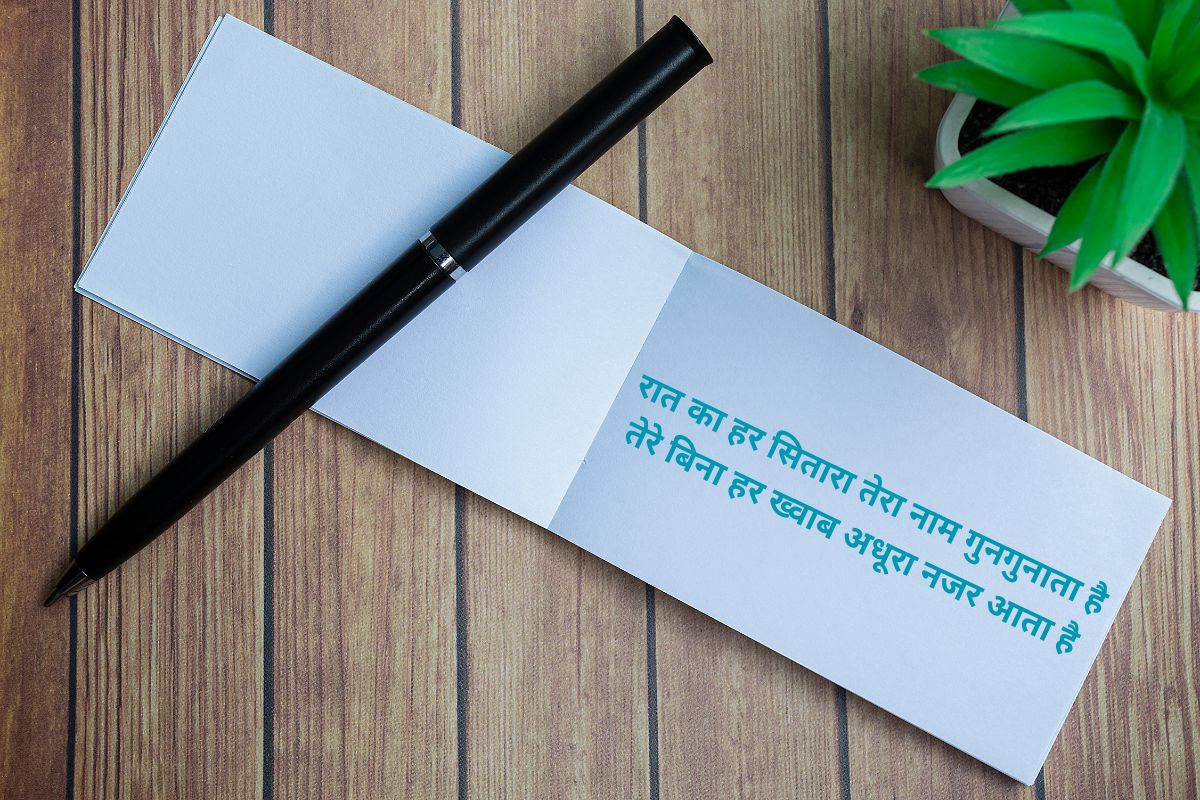 रात का हर सितारा तेरा नाम गुनगुनाता है
तेरे बिना हर ख्वाब अधूरा नजर आता है